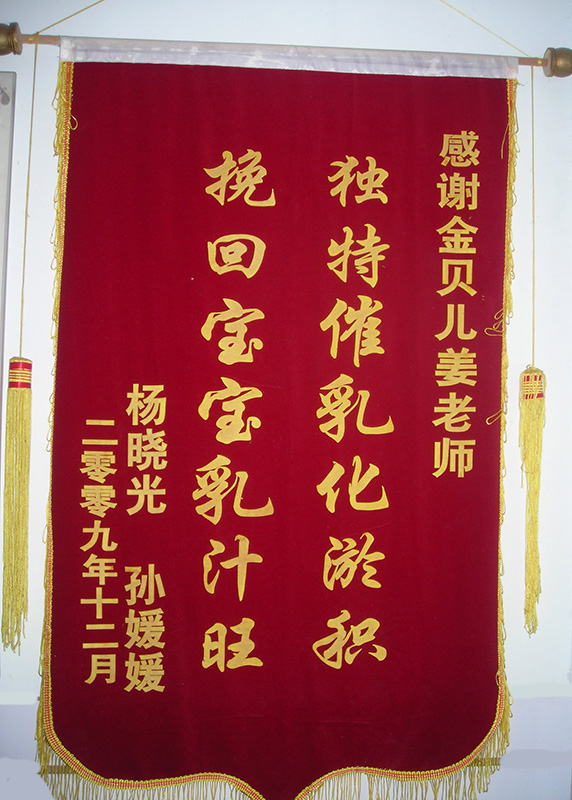 感谢金贝儿姜老师
独特催乳化淤积
挽回宝宝乳汁旺
杨晓光 孙媛媛
二零零九年十二月